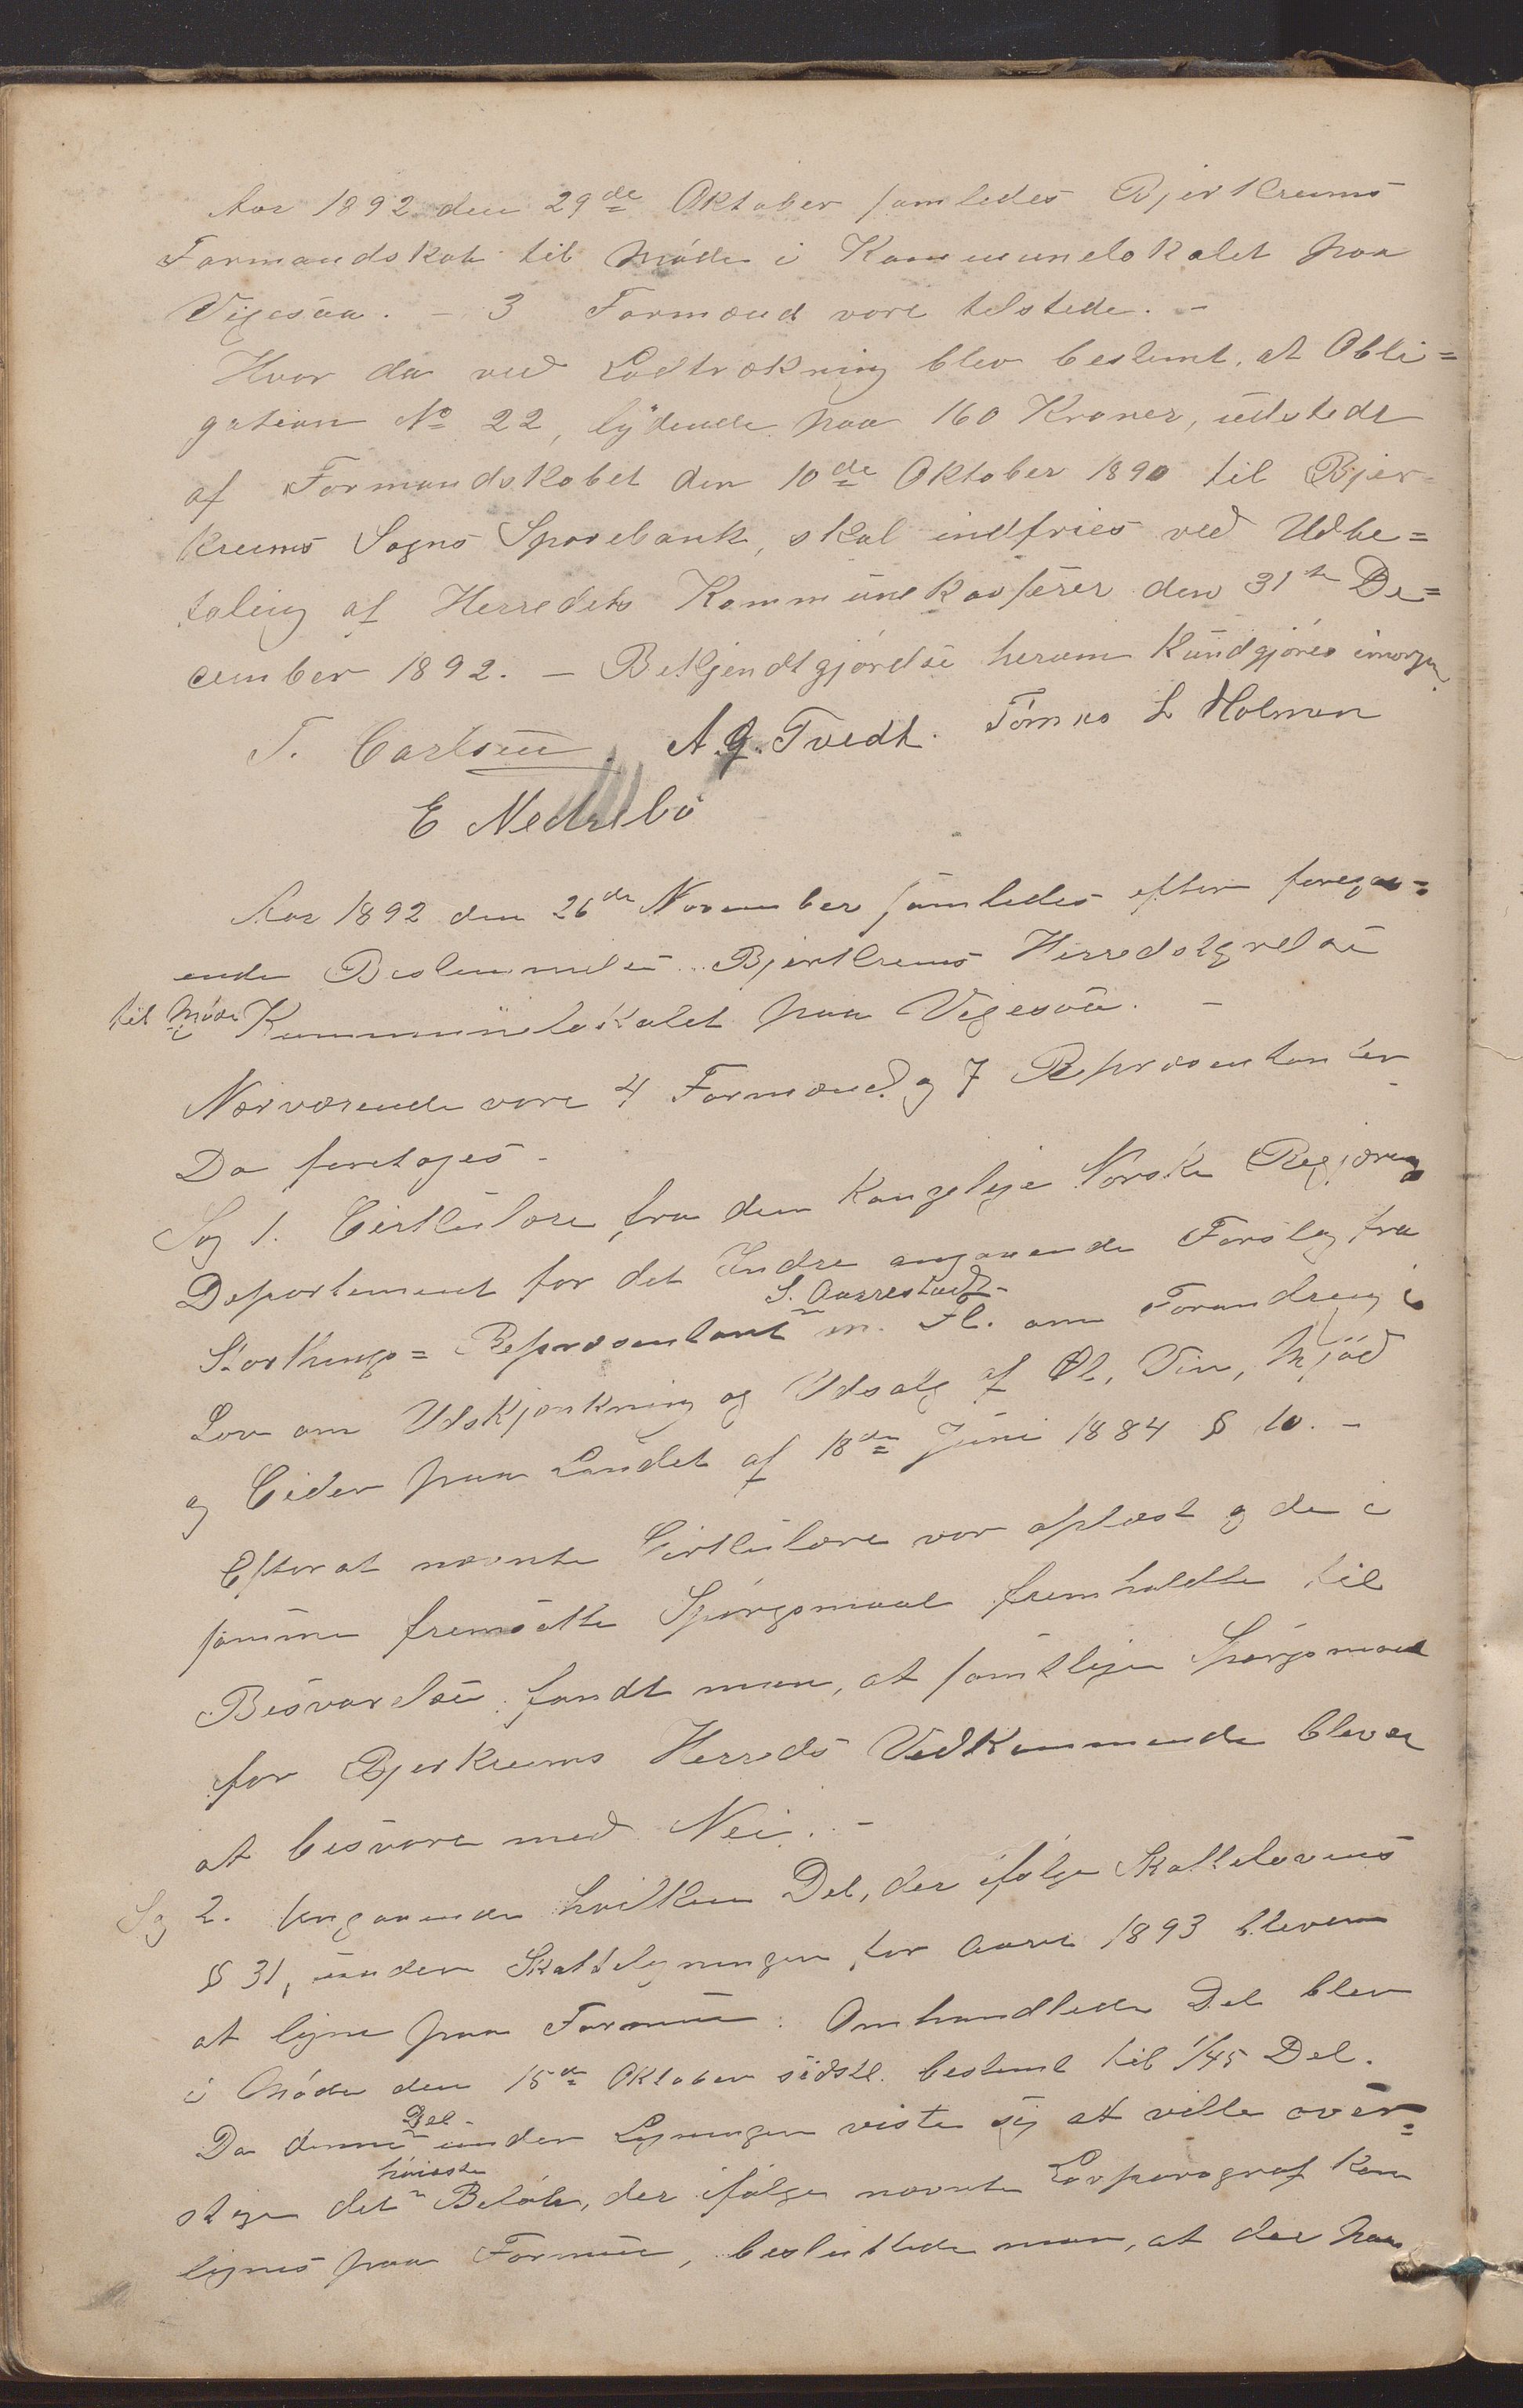 Aar 1892 den 29de Oktober samledes Bjerkreims
Formandskab til Møde i Kommunelokalet paa
Vigesaa. - 3 Formænd vare tilstede. -
Hvor da ved Lodtrækning blev bestemt, at Obli=
gation No 22, lydende paa 160 Kroner, udstedt
af Formandskabet den 10de Oktober 1890 til Bjer-
kreims Sogns Sparebank, skal indfries ved Udbe=
taling af Herredets Kommunekasserer den 31te De=
cember 1892. - Bekjendtgjørelse herom kundgjøres imorgen.
T. Carlsen. A. G. Tvedt. Tønnes L Holmen
E Nedrebø
Aar 1892 den 26de November samledes efter foregaa=
ende Bestemmelse Bjerkreims Herredstyrelse
til Møde i Kommunelokalet paa Vigesaa. -
Nærværende vare 4 Formænd og 7 Repræsentanter
Da foretoges -
Sag 1. Cirkulære fra den Kongelige Norske Regjerings
Departement for det Indre angaaende Forslag fra
Storthings=Repræsentant S. Aarrestad m. Fl. om Forandring i
Lov om Udskjænkning og Udsalg af Øl, Vin, Mjød
og Cider paa Landet af 18de Juni 1884 § 10. -
Efterat nævnte Cirkulære var oplæst og de i
samme fremsatte Spørgsmaal fremholdte til
Besvarelse, fandt man, at samtlige Spørgsmaal
for Bjerkreims Herreds Vedkommende bliver
at besvare med Nei. -
Sag 2. Angaaende hvilken Del, der ifølge Skattelovens
§ 31, under Skatteligningen for Aaret 1893 bliver
at ligne paa Formue. Omhandlede Del blev
i Møde den 15de Oktober sidstl. bestemt til 1/45 Del.
Da denne Del under Ligningen viste sig at ville over=
stige det høieste Beløb, der ifølge nævnte Lovparagraf kan
lignes paa Formue, besluttede man, at der paa